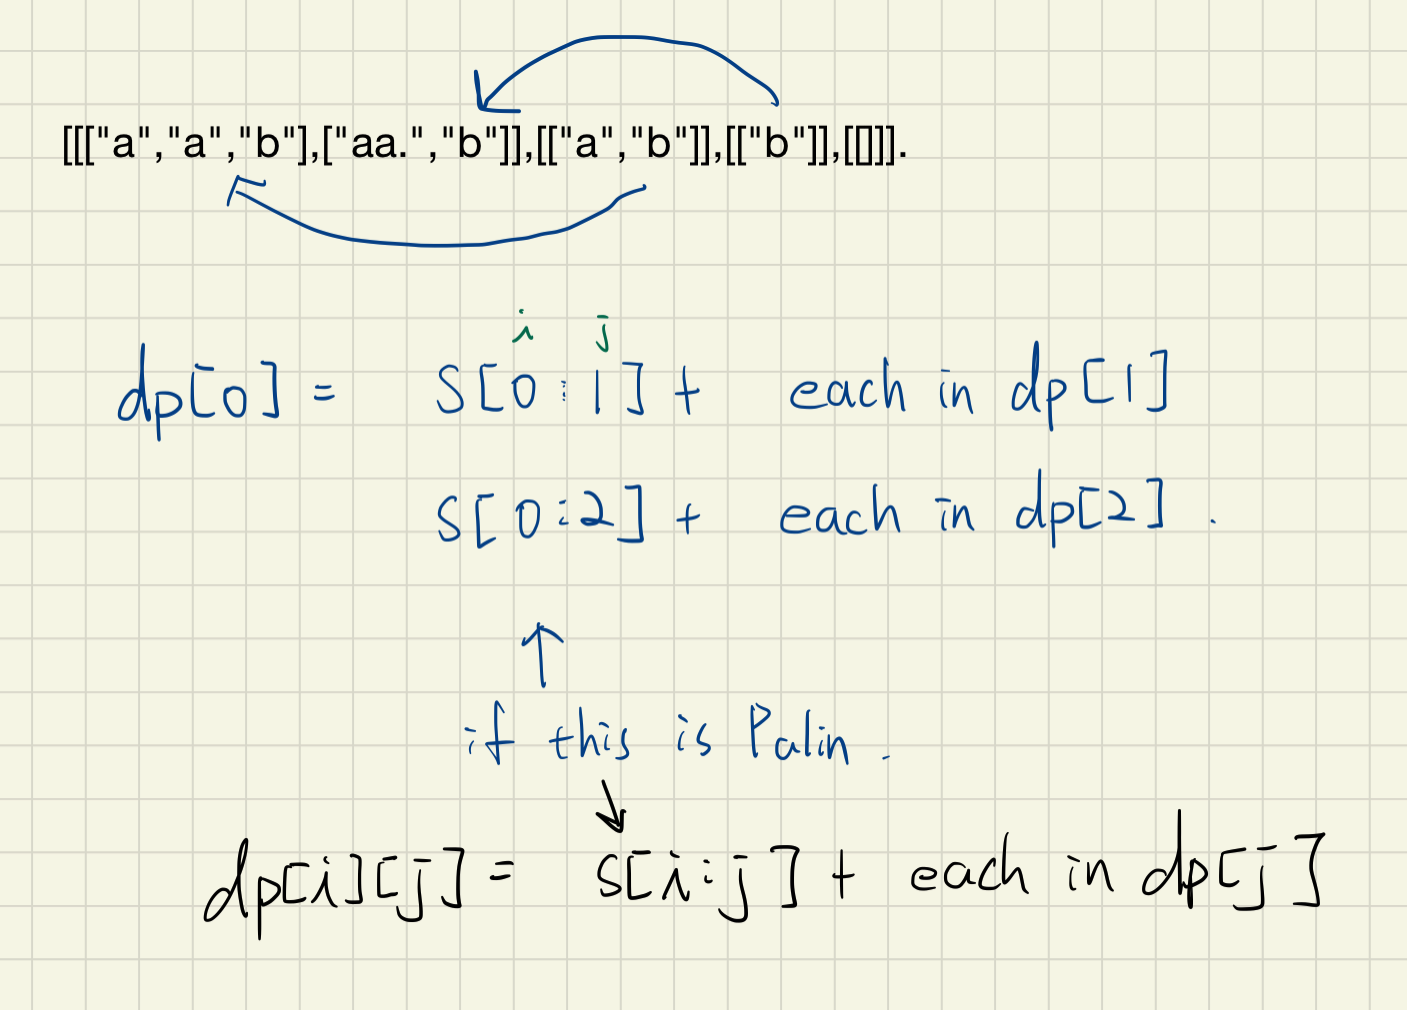 [[["a","a","b"],["aa.","b"]],[["a","b"]],[["b"]],[[]]].
i j
dp[0] = S[0:1] + each in dp[1]
S[0:2] + each in dp[2].
if this is Palin.
dp[i][j] = S[i:j] + each in dp[j]